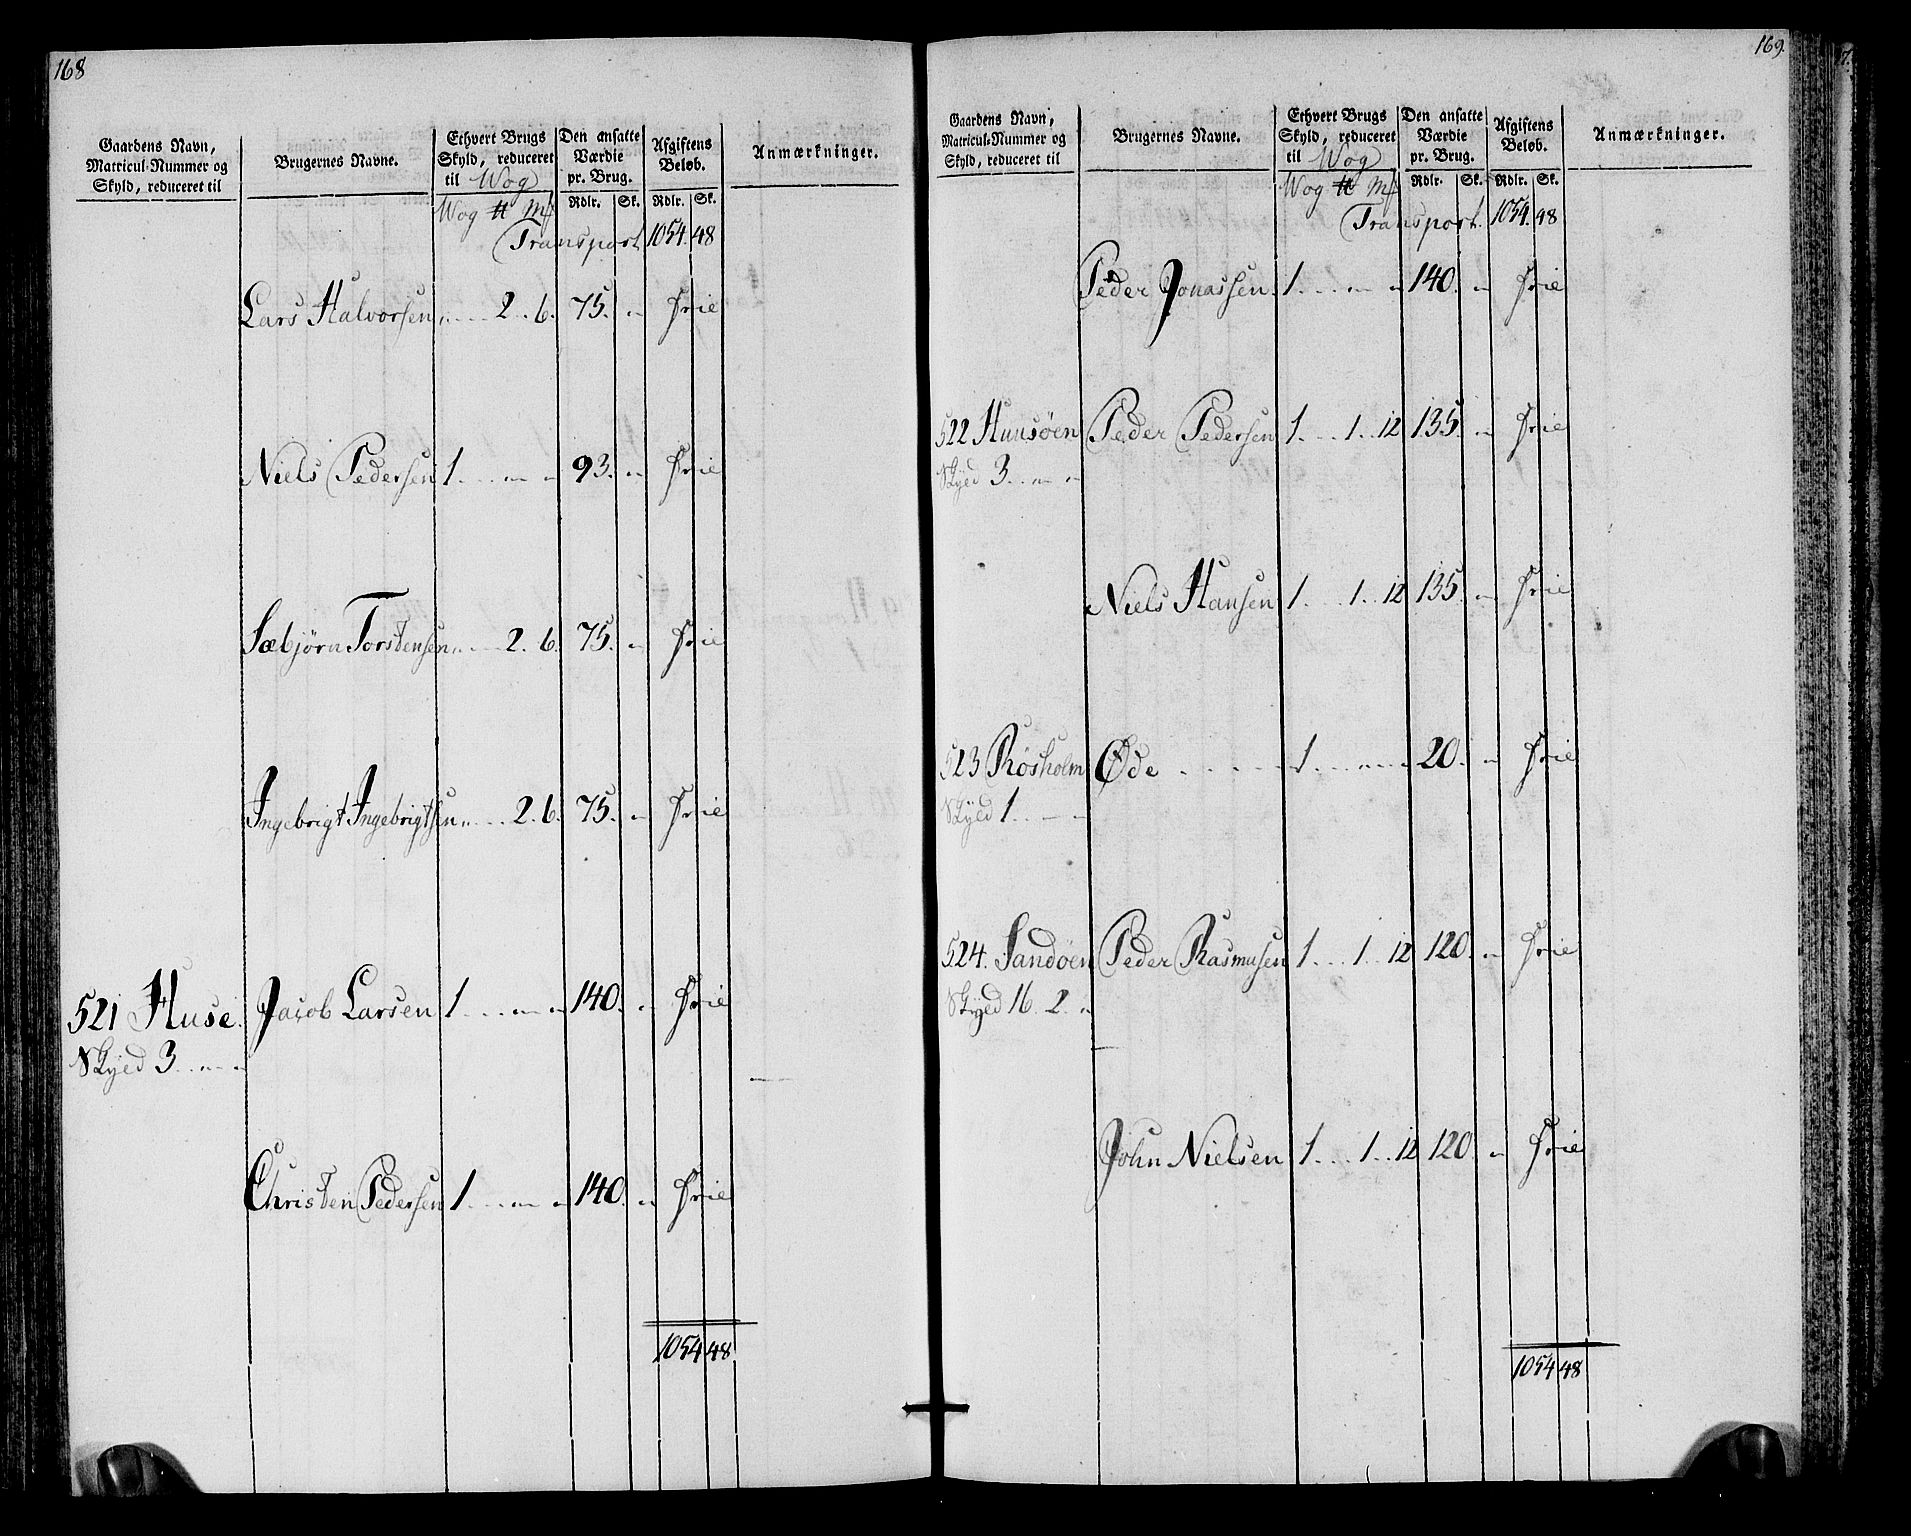 168
Gaardens Navn, Matricul-Nummer og Skyld, reduceret til
Brugernes Navne.
Ethvert Brugs Skyld, reduceret til Wog
Den ansatte Værdie pr. Brug.
Afgiftens Beløb.
Anmærkninger.
Wog ℔ Mk Rdlr. Sk. Rdlr. Sk.
Transport 1054. 48
Lars Halvorsen „ . . . . 2 . . 6. 75. „ Frie
Niels Pedersen 1 . . . „ . „ 93. „ Frie
Sæbjörn Torstensen „ . . . 2. 6. 75. „ Frie
Ingebrigt Ingebrigtsen „ . . . 2. 6. 75. „ Frie
521 Huse. Jacob Larsen 1 . . . . „ „ 140. „ Frie
Skyld 3 . . „ . „
Christen Pedersen 1 . . . „ „ 140. „ Frie
1054 48
169.
Gaardens Navn, Matricul-Nummer og Skyld, reduceret til
Brugernes Navne.
Ethvert Brugs Skyld, reduceret til Wog
Den ansatte Værdie pr. Brug.
Afgiftens Beløb.
Anmærkninger.
Wog ℔ Mk Rdlr. Sk. Rdlr. Sk.
Transport. 1054. 48
Peder Jonassen. 1 . . . „ „ 140. „ Frie
522 Huusöen Peder Pedersen 1 . . . 1 . . 12 135. „ Frie
Skyld 3 . . „ . „
Niels Hansen 1 . . . 1 . . 12 135. „ Frie
523 Rösholm Øde . . . . 1 . . . „ „ 20. „ Frie
Skyld 1 . . „ „
524. Sandöen Peder Rasmusen 1 . . . 1 . . 12 120. „ Frie
Skyld 16. 2. „
John Nielsen 1 . . . 1 . . 12 120. „ Frie
1054 48